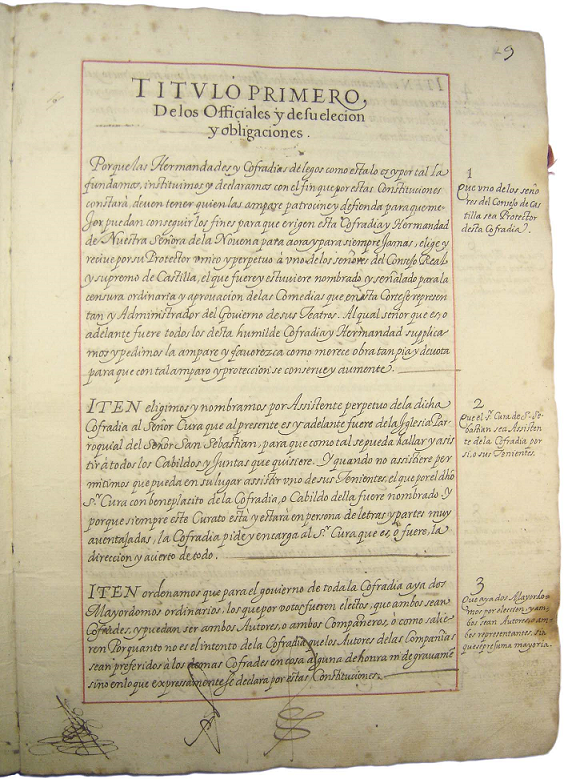 9
TITVLO PRIMERO,
De los Officiales y de su elecion
y obligaciones.
Porque las Hermandades y Cofradias de legos como esta lo es y por tal la
fundamos, instituimos y declaramos con el fin que por estas Constituciones
constará, deven tener quien las ampare patrocine y defienda para que me-
jor puedan conseguir los fines para que erigen esta Cofradia y Hermandad
de Nuestra Señora de la Nouena para aora y para siempre Jamas, elige y
recive por su Protector vnico y perpetuo à vno de los señores del Consejo Real
y supremo de Castilla, el que fuere y estuviere nombrado y señalado para la
censura ordinaria y aprovacion de las Comedias que en esta Corte se represen-
tan y Administrador del Govierno de sus Teatros. Al qual señor que es, o
adelante fuere todos los desta humilde Cofradia y Hermandad supplica-
mos y pedimos la ampare y favorezca como merece obra tan pia y devota
para que con tal amparo y proteccion se conserve y aumente.
1
Que vno de los seño-
res del Consejo de Cas-
tilla sea Protector
desta Cofradia.
ITEN eligimos y nombramos por Assistente perpetuo de la dicha
Cofradia al Señor Cura que al presente es y adelante fuere de la Iglesia Par-
roquial del Señor San Sebastian, para que como tal se pueda hallar y asis-
tir à todos los Cabildos y Juntas que quisiere. Y quando no assistiere per-
mitimos que pueda en su lugar assistir vno de sus Tenientes, el que por el dhô
Sr. Cura con beneplacito de la Cofradia, o Cabildo della fuere nombrado. Y
porque siempre este Curato està y estarà en persona de letras y partes muy
aventajadas, la Cofradia pide y encarga al Sr. Cura que es, ò fuere, la
direccion y acierto de todo.
2
Que el Sr. Cura de S. Se-
bastian sea Assisten-
te de la Cofradia por
si, o sus Tenientes.
ITEN ordenamos que para el govierno de toda la Cofradia aya dos
Mayordomos ordinarios, los que por votos fueren electos, que ambos sean
Cofrades, y puedan ser ambos Autores, o ambos Compañeros, o como salie-
ren Por quanto no es el intento de la Cofradia que los Autores de las Compañias
sean preferidos à los demas Cofrades en cosa alguna de honra ni de gravamê
sino en lo que expressamente se declara por estas Constituciones.
3
Que aya dos Mayordo-
mos por eleccion, y am-
bos sean Autores o am-
bos representantes, sin
que se presuma mayoria.